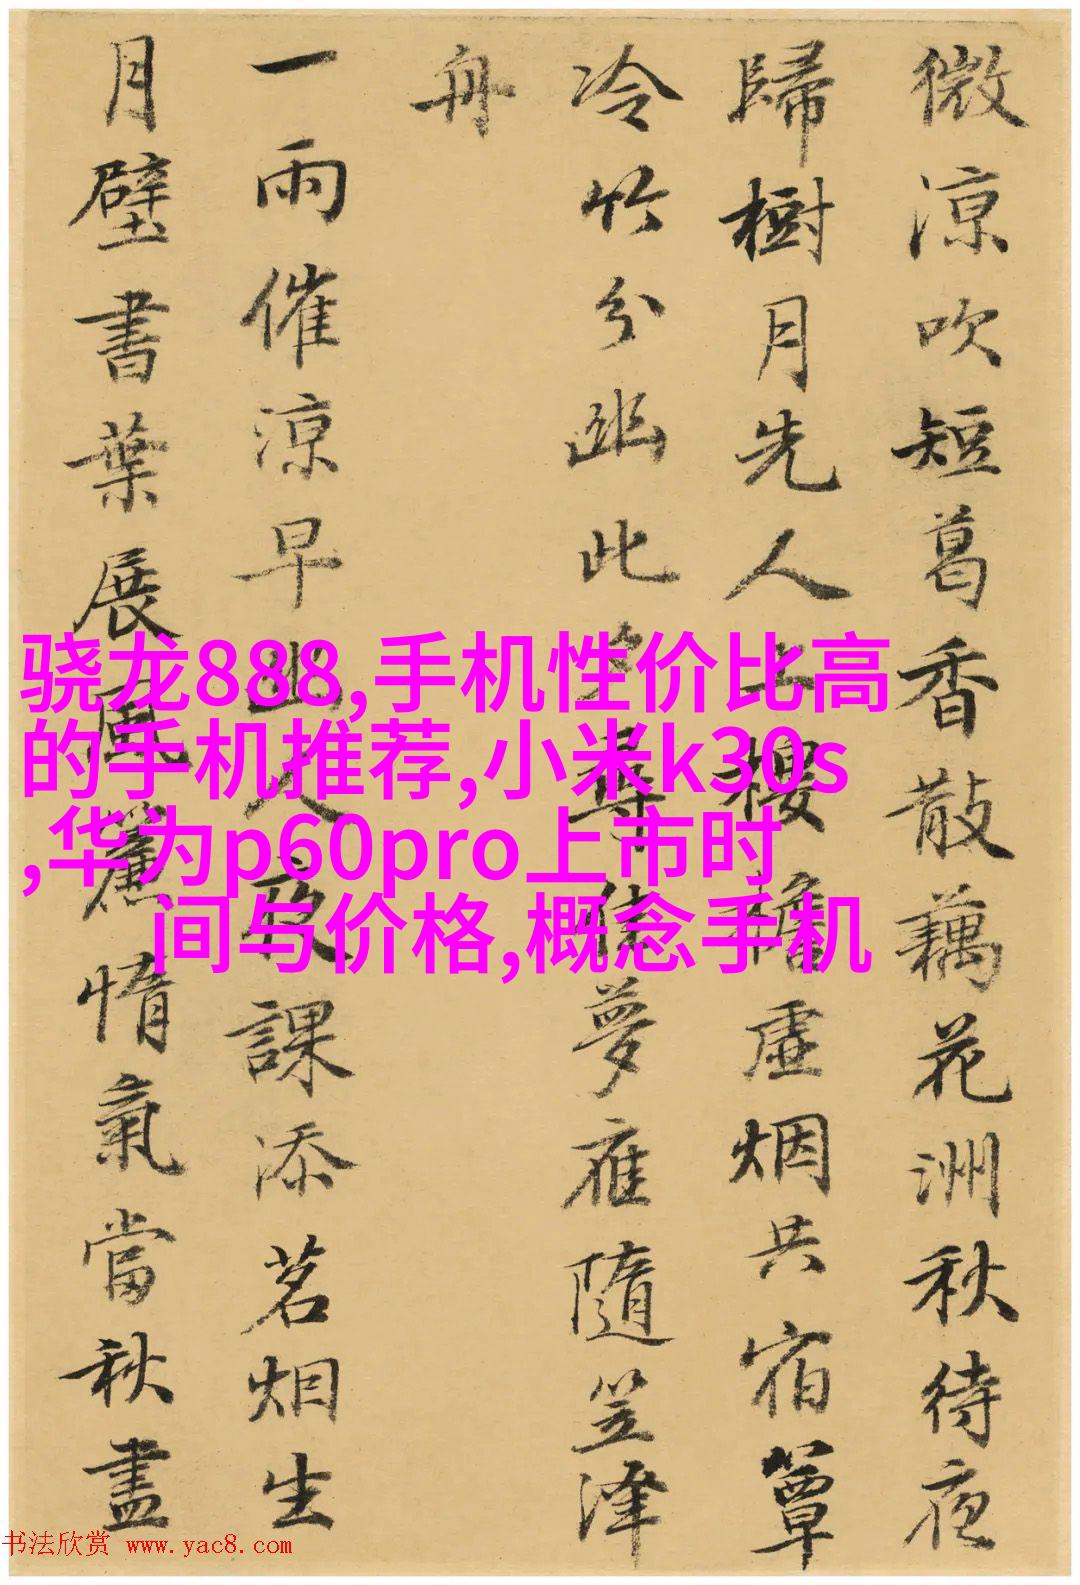 微涼吹短葛香散藕花洲秋待夜
歸樹月先人上樓檐虛烟共宿簟
冷竹分幽此尋佳夢應隨笠澤
舟
一雨催涼早幽人夜課添茗烟生
月壁書葉展風簾惰氣當秋盡
骁龙888,手机性价比高
的手机推荐,小米k30s
,华为p60pro上市时
间与价格,概念手机
书法欣赏 www.yac8.com